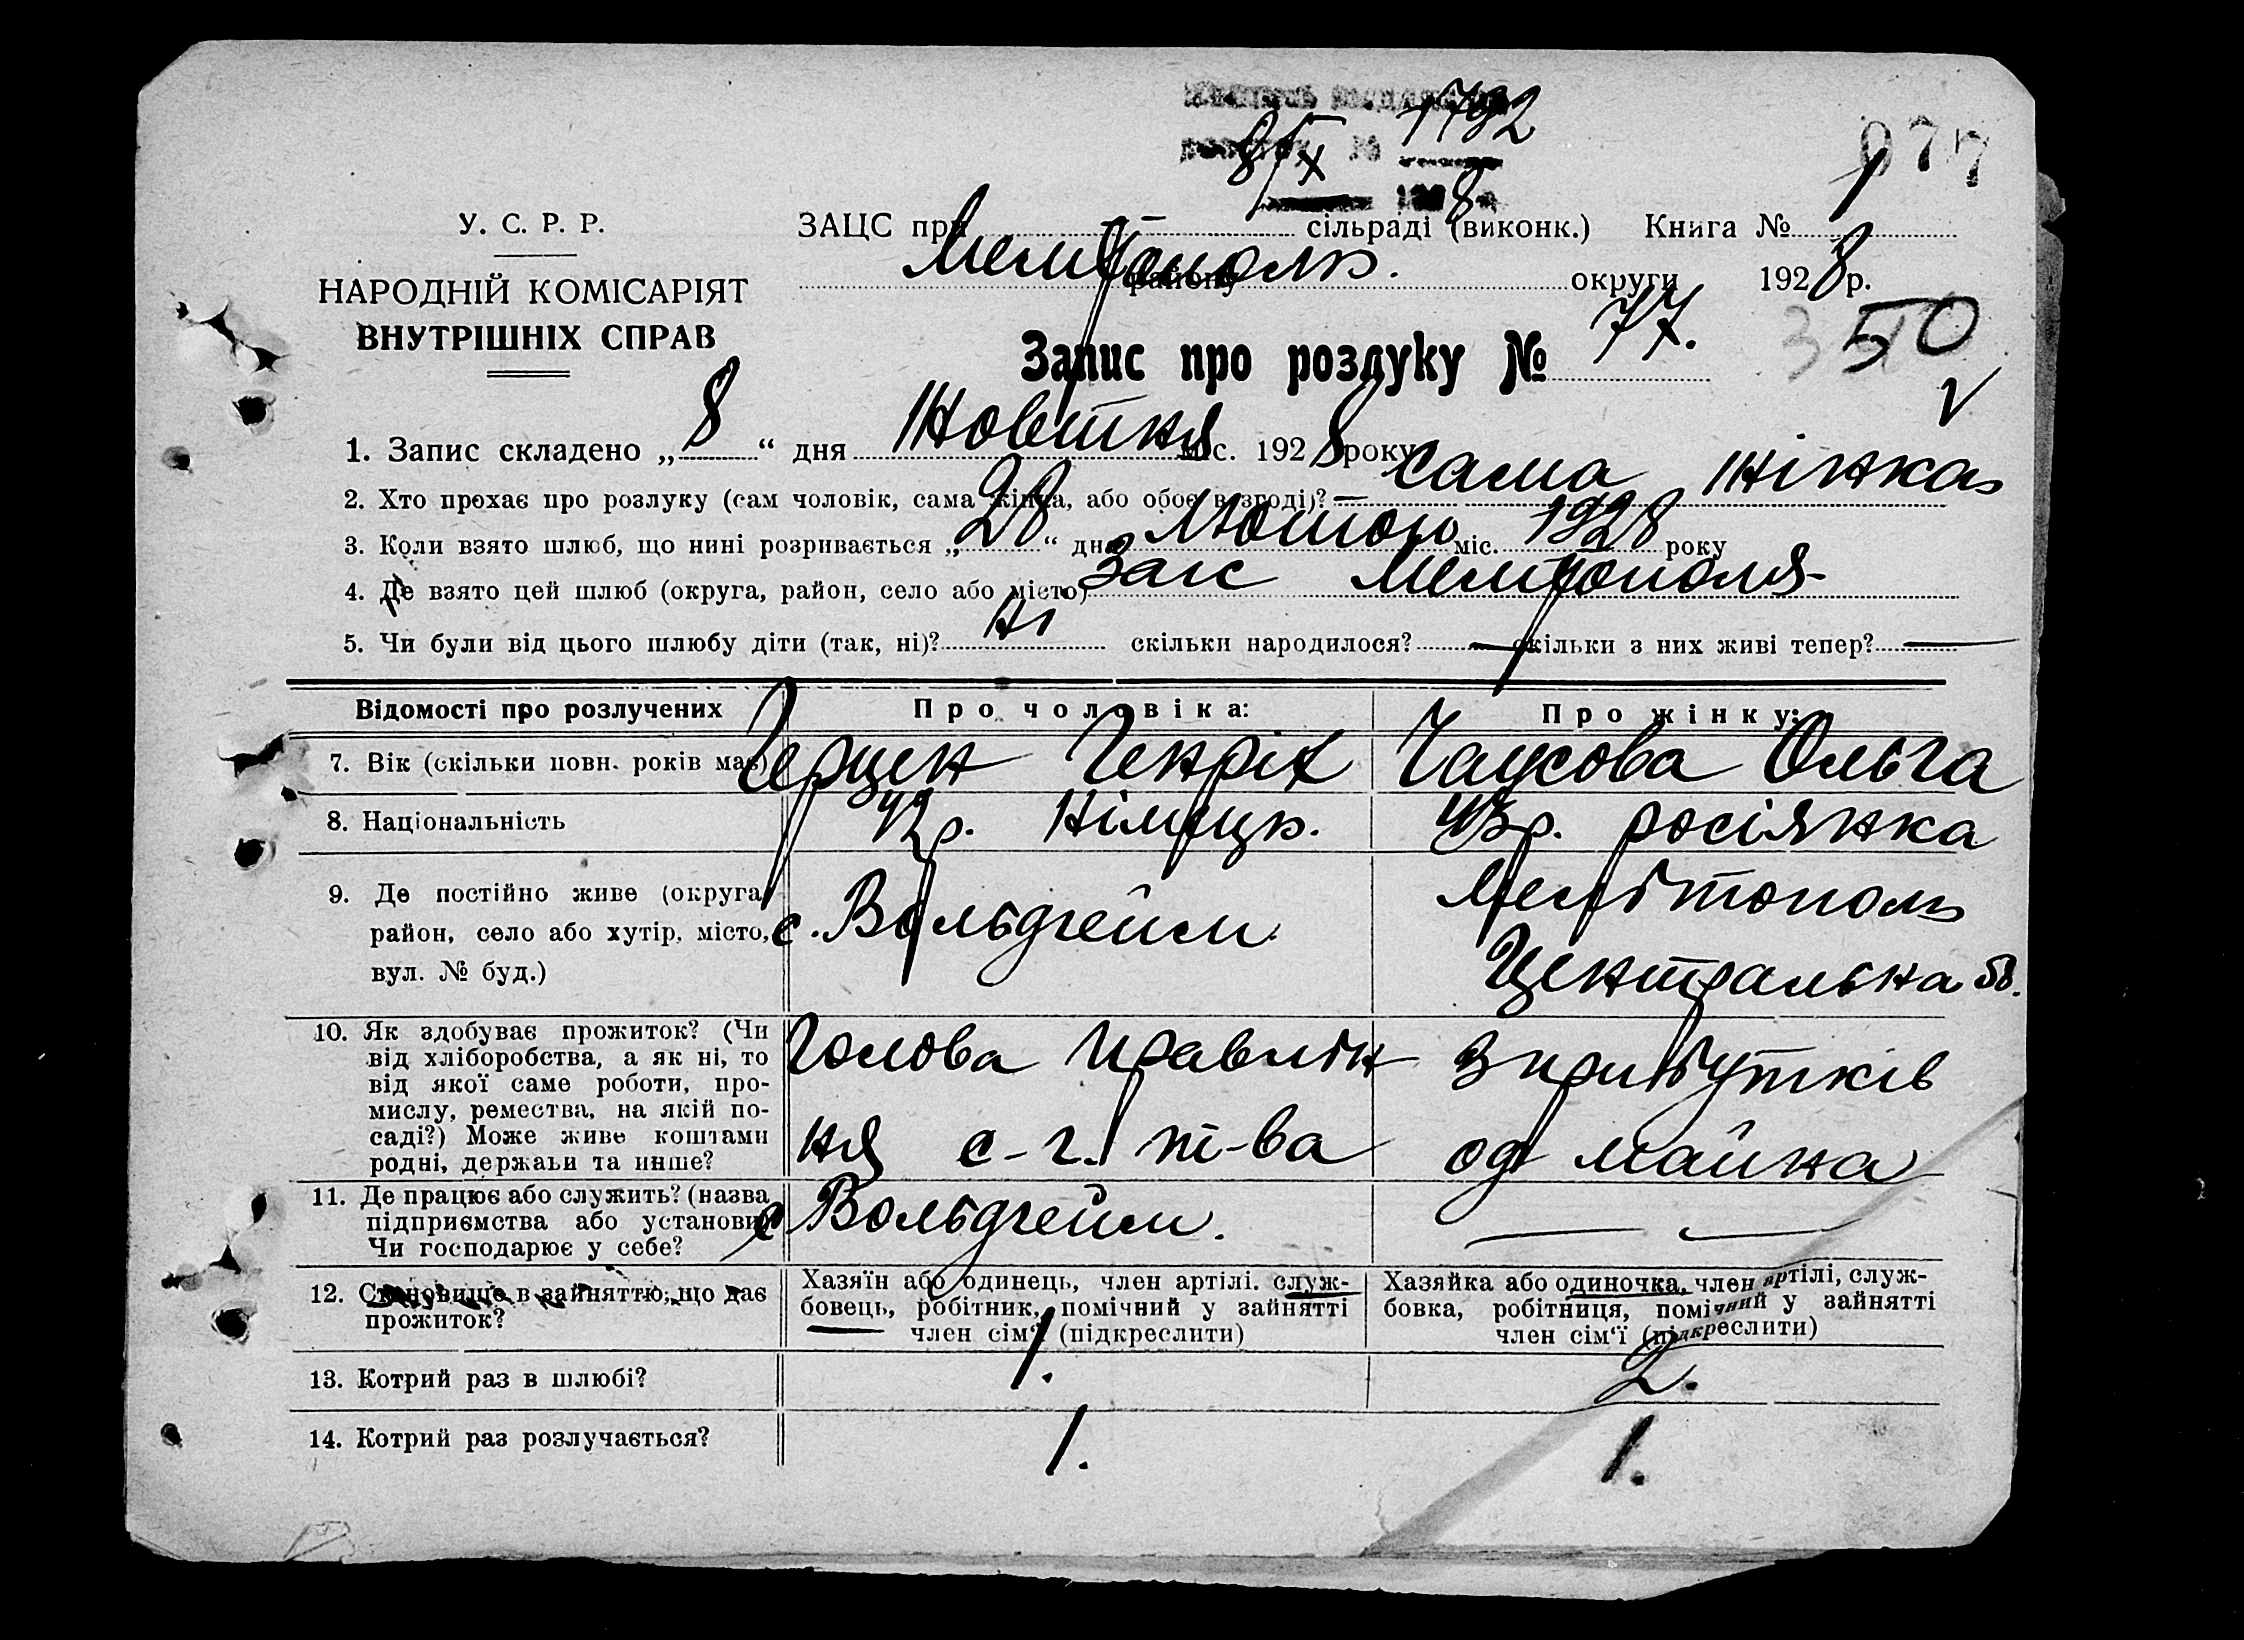 1792
8/X
077
У. С. Р. Р.
ЗАЦС при сільраді (виконк.) Книга № 1
Мелітополь. району округи 1928 р.
НАРОДНІЙ КОМІСАРІЯТ
ВНУТРІШНІХ СПРАВ
Запис про розлуку № 77.
350
1. Запис складено „8“ дня Жовтня міс. 1928 року
2. Хто прохає про розлуку (сам чоловік, сама жінка, або обоє в згоді)? — сама жінка
3. Коли взято шлюб, що нині розривається „28“ дня Лютого міс. 1928 року
4. Де взято цей шлюб (округа, район, село або місто) Загс Мелітополя
5. Чи були від цього шлюбу діти (так, ні)? Ні скільки народилося? — скільки з них живі тепер? —
Відомості про розлучених Про чоловіка: Про жінку:
7. Вік (скільки повн. років має) Герцен Генріх Чаусова Ольга
8. Національність 42 р. Німець. 43 р. росіянка
9. Де постійно живе (округа, район, село або хутір, місто, вул. № буд.)
с. Вольдгейм.
Мелітополь
Центральна 50.
10. Як здобуває прожиток? (Чи від хліборобства, а як ні, то від якої саме роботи, промислу, ремества, на якій посаді?) Може живе коштами родні, держави та инше?
Голова Правлін
ня с-г. т-ва
З прибутків
од майна
11. Де працює або служить? (назва підприємства або установи) Чи господарює у себе?
с Вольдгейм.
— —
12. Становище в зайняттю, що дає прожиток?
Хазяїн або одинець, член артілі, службовець, робітник, помічний у зайнятті член сім‘ї (підкреслити)
Хазяйка або одиночка, член артілі, службовка, робітниця, помічний у зайнятті член сім‘ї (підкреслити)
13. Котрий раз в шлюбі? 1. 2.
14. Котрий раз розлучається? 1. 1.